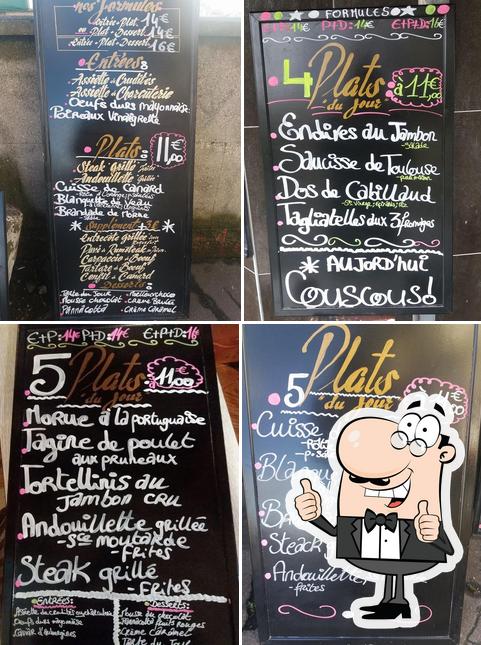 nos Formules
Entrée-Plat 14€
ou Plat-Dessert 14€
Entrée-Plat-Dessert 16€
Entrées
Assiette de Crudités
Assiette de Charcuterie
Oeufs durs mayonnaise
Poireaux Vinaigrette
Plats 11,00
Steak grillé
Andouillette
Cuisse de Canard
Blanquette de Veau
Brandade de Morue
Supplément
Entrecôte Grillée
Pavé de Rumsteak
Carpaccio de Boeuf
Tartare de Boeuf
Confit de Canard
Desserts
Tarte du Jour
Mousse chocolat
Pannacotta
Crème Brulée
Crème Caramel
FORMULES
E+P: 14€ P+D: 14€ E+P+D: 16€
4 Plats
du jour
à 11€,00
Endives au Jambon
-salade
Saucisse de Toulouse
Dos de Cabillaud
Tagliatelles aux 3 fromages
* AUJORD'HUI
Couscous!
E+P: 14€ P+D: 14€ E+P+D: 16€
5 Plats
du jour
à 11,00
Morue à la portuguaise
Tagine de poulet
aux pruneaux
Tortellinis au
Jambon cru
Andouillette grillée
-sce moutarde
-Frites
Steak grillé
-Frites
Entrées:
Oeufs durs mayonnaise
Caviar d'aubergines
Desserts:
Mousse au chocolat
Pannacotta fruits rouges
Crème Caramel
Tarte du Jour
5 Plats
du jour
Cuisse
Steack
Andouillette
-frites